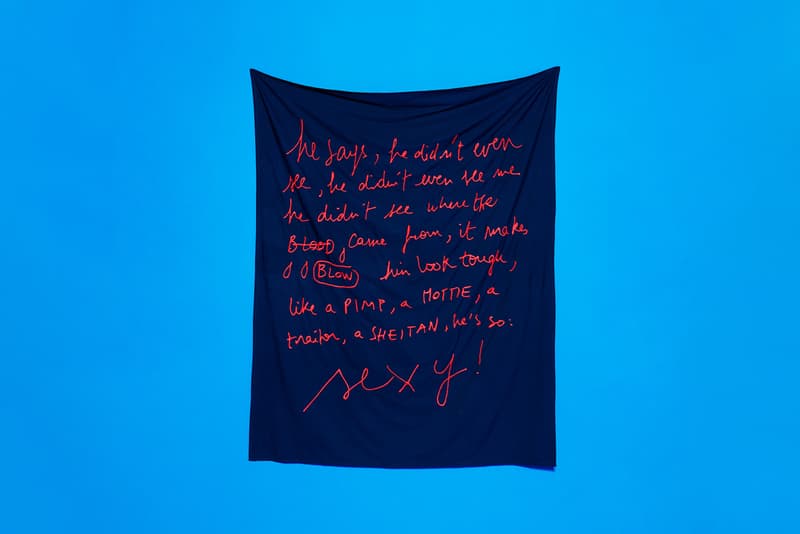 he says, he didn't even
see, he didn't even see me
he didn't see where the
BLOOD, came from, it makes
BLOW him look tough,
like a PIMP, a HOTTIE, a
traitor, a SHEITAN, he's so:
sexy!